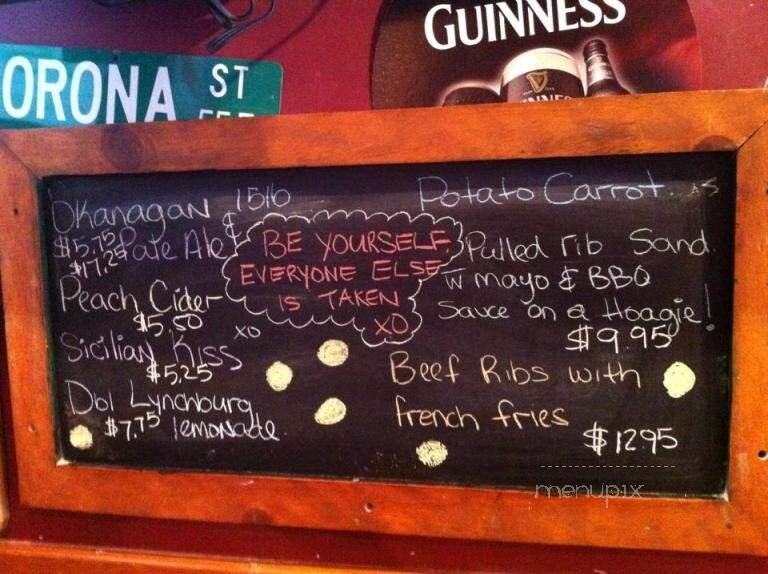 GUINNESS
ORONA ST
Okanagan 1516
$15.75 Pale Ale
$17.25
Peach Cider
$5.50
Sicilian Kiss xo
$5.25
Dbl Lynchburg
$7.75 lemonade
BE YOURSELF
EVERYONE ELSE
IS TAKEN
XO
Potato Carrot.
Pulled rib Sand.
w mayo & BBQ
Sauce on a Hoagie!
$9.95
Beef Ribs with
french fries
$1295
menupix